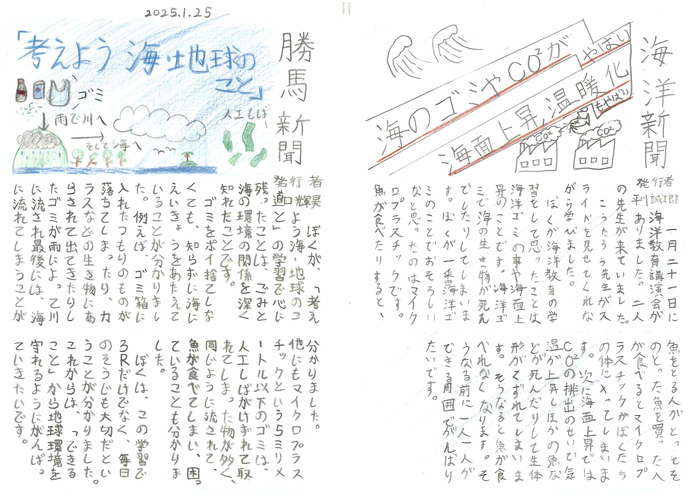 2025.1.25
勝馬新聞
「考えよう 海・地球の
こと」
ゴミ
雨で川へ
そして海へ
人工しば
発行者
ぼくが、「考え
よう海・地球のこ
と」の学習で心に
残ったことは、ごみと
海の環境の関係を深く
知れたことです。
ゴミをポイ捨てしな
くても、知らずに海に
えいきょうをあたえて
いることが分かりまし
た。例えば、ゴミ箱に
入れたつもりのものが
落ちてしまったり、カ
ラスなどの生き物にあ
らされて出てきたりし
たゴミが雨により、乙川
に流され最後には、海
に流れてしまうことが
分かりました。
他にもマイクロプラス
チックという5ミリメ
ートル以下のゴミは、
人工しばがちぎれて取
れてしまった物が多く、
同じように流されて、
魚が食べてしまい、困っ
ていることも分かりま
した。
ぼくは、この学習で
3Rだけでなく、毎日
のそうじも大切だとい
うことが分かりました。
これからは、「できる
こと」から地球環境を
守れるようにがんばっ
ていきたいです。
海洋新聞
海のゴミやCO²が
やばい
海面上昇温暖化
CO²
CO²
発行者
一月二十一日に
海洋教育講演会が
ありました。二人
の先生が来ていました。
こうたろう先生がス
ライドを見せてくれな
がら学びました。
ぼくが海洋教育の学
習をして思ったことは
海洋ゴミの事や海面上
昇のことです。海洋ゴ
ミで海の生き物が死ん
でしたりしてしまいま
す。ぼくが一番海洋ゴ
ミのことでおそろしい
なと思ったのはマイク
ロプラスチックです。
魚が食べたりすると、
魚をとる人がとってそ
のとった魚を買った人
が食べるとマイクロプ
ラスチックがぼくたち
の体に入ってしまいま
す。次に海面上昇では
CO²の排出のせいで気
温が上昇しほかの魚な
どが死んだりして生体
形がくずれてしまいま
す。そうなると魚が食
べれなくなります。そ
うなる前に一人一人が
できる範囲でがんばり
たいです。